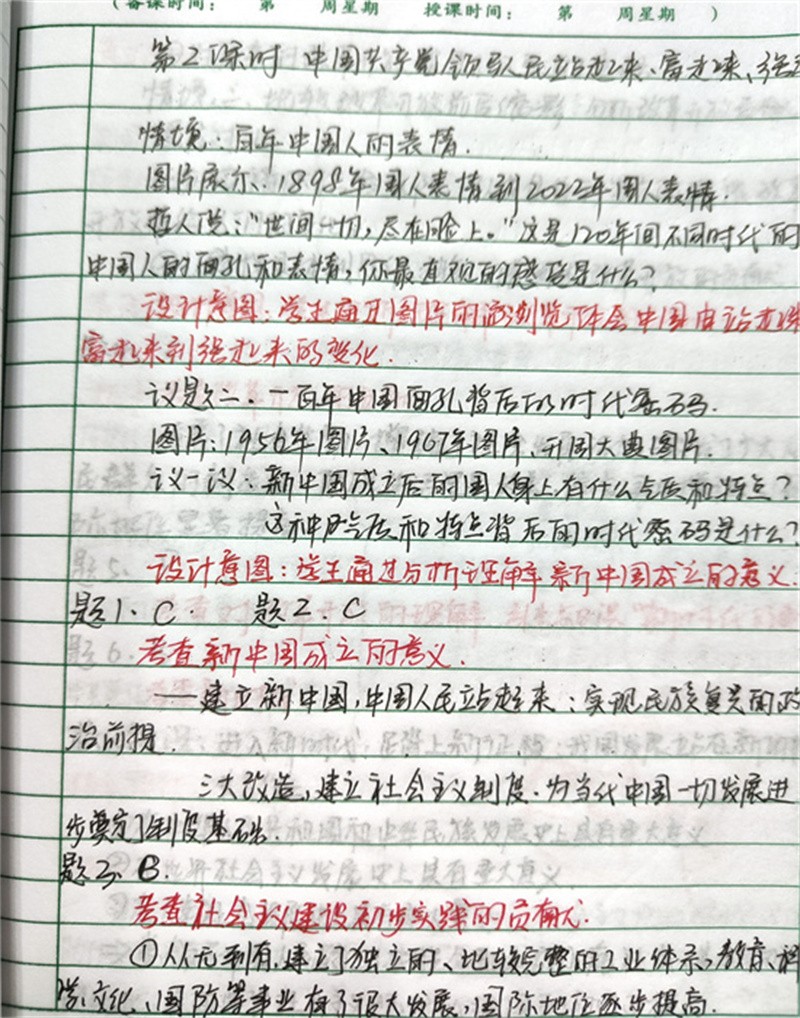 (备课时间: 第 周星期 授课时间: 第 周星期 )
第2课时 中国共产党领导人民站起来、富起来、强起
情境:百年中国人的表情.
图片展示:1898年国人表情到2022年国人表情.
哲人说:"世间一切,尽在脸上。"这是120年间不同时代的
中国人的面孔和表情,你最直观的感受是什么?
设计意图:学生通过图片的浏览体会中国由站起来
富起来到强起来的变化.
议题二.一百年中国面孔背后的时代密码.
图片:1956年图片、1967年图片、开国大典图片.
议一议:新中国成立后的国人身上有什么气质和特点?
这种气质和特点背后的时代密码是什么?
设计意图:学生通过分析理解新中国成立的意义.
题1.C. 题2.C
考查新中国成立的意义.
——建立新中国,中国人民站起来:实现民族复兴的政
治前提.
三大改造,建立社会主义制度.为当代中国一切发展进
步奠定了制度基础.
题3.B.
考查社会主义建设初步实践的贡献.
①从无到有.建立了独立的、比较完整的工业体系,教育、科
学、文化、国防等事业有了很大发展,国际地位逐步提高.